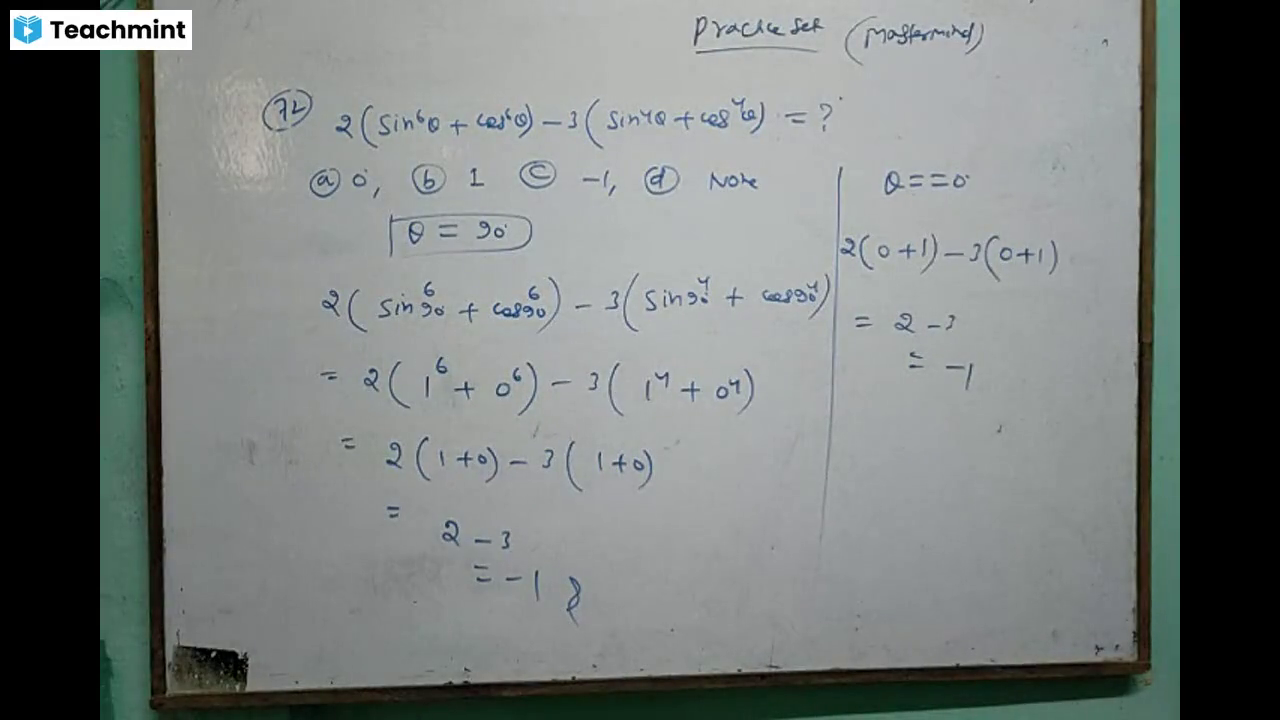 Teachmint
Practice set (Mastermind)
72 2(sin⁶θ + cos⁶θ) – 3(sin⁴θ + cos⁴θ) = ?
a 0, b 1 c –1, d None
θ = 90
2(sin⁶90 + cos⁶90) – 3(sin90⁴ + cos90⁴)
= 2(1⁶ + 0⁶) – 3(1⁴ + 0⁴)
= 2(1+0) – 3(1+0)
=
2 – 3
= –1
θ = = 0
2(0+1) – 3(0+1)
= 2 – 3
= –1